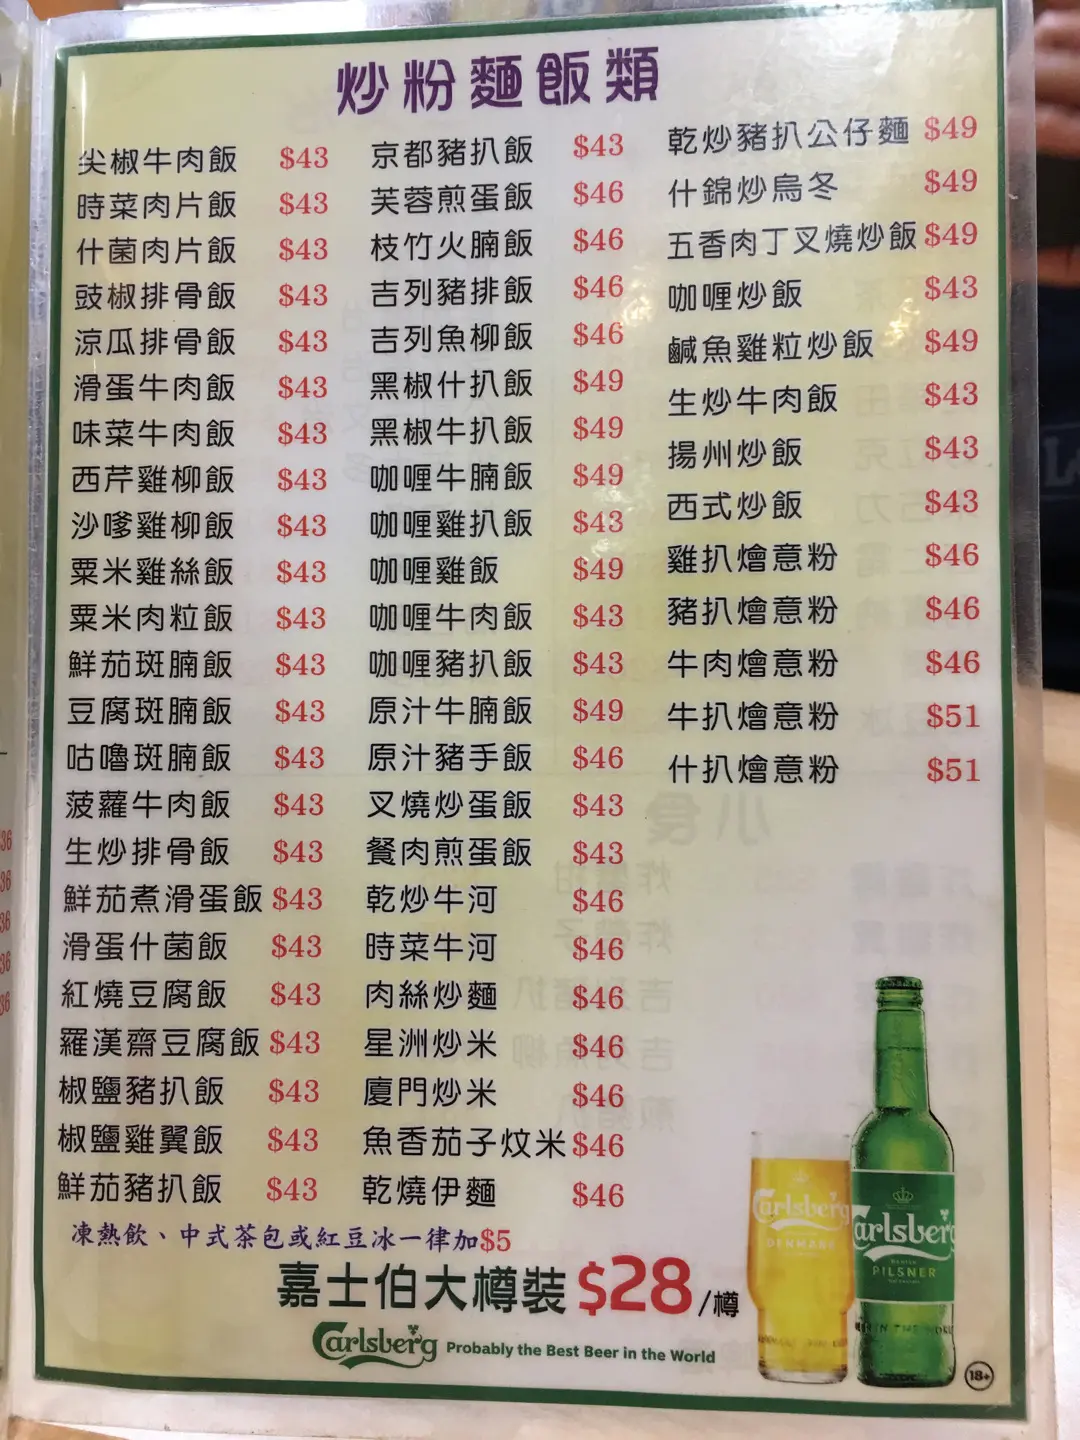 炒粉麵飯類
尖椒牛肉飯 $43
時菜肉片飯 $43
什菌肉片飯 $43
豉椒排骨飯 $43
涼瓜排骨飯 $43
滑蛋牛肉飯 $43
味菜牛肉飯 $43
西芹雞柳飯 $43
沙嗲雞柳飯 $43
粟米雞絲飯 $43
粟米肉粒飯 $43
鮮茄斑腩飯 $43
豆腐斑腩飯 $43
咕嚕斑腩飯 $43
菠蘿牛肉飯 $43
生炒排骨飯 $43
鮮茄煮滑蛋飯 $43
滑蛋什菌飯 $43
紅燒豆腐飯 $43
羅漢齋豆腐飯 $43
椒鹽豬扒飯 $43
椒鹽雞翼飯 $43
鮮茄豬扒飯 $43
京都豬扒飯 $43
芙蓉煎蛋飯 $46
枝竹火腩飯 $46
吉列豬排飯 $46
吉列魚柳飯 $46
黑椒什扒飯 $49
黑椒牛扒飯 $49
咖喱牛腩飯 $49
咖喱雞扒飯 $43
咖喱雞飯 $49
咖喱牛肉飯 $43
咖喱豬扒飯 $43
原汁牛腩飯 $49
原汁豬手飯 $46
叉燒炒蛋飯 $43
餐肉煎蛋飯 $43
乾炒牛河 $46
時菜牛河 $46
肉絲炒麵 $46
星洲炒米 $46
廈門炒米 $46
魚香茄子炆米 $46
乾燒伊麵 $46
乾炒豬扒公仔麵 $49
什錦炒烏冬 $49
五香肉丁叉燒炒飯 $49
咖喱炒飯 $43
鹹魚雞粒炒飯 $49
生炒牛肉飯 $43
揚州炒飯 $43
西式炒飯 $43
雞扒燴意粉 $46
豬扒燴意粉 $46
牛肉燴意粉 $46
牛扒燴意粉 $51
什扒燴意粉 $51
凍熱飲、中式茶包或紅豆冰一律加$5
嘉士伯大樽裝 $28/樽
Carlsberg Probably the Best Beer in the World
Carlsberg
DENMARK
Carlsberg
DANISH
PILSNER
18+